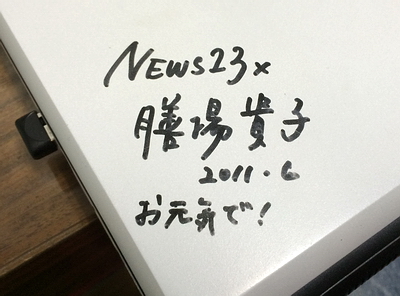 NEWS23x
膳場貴子
2011.6
お元気で!